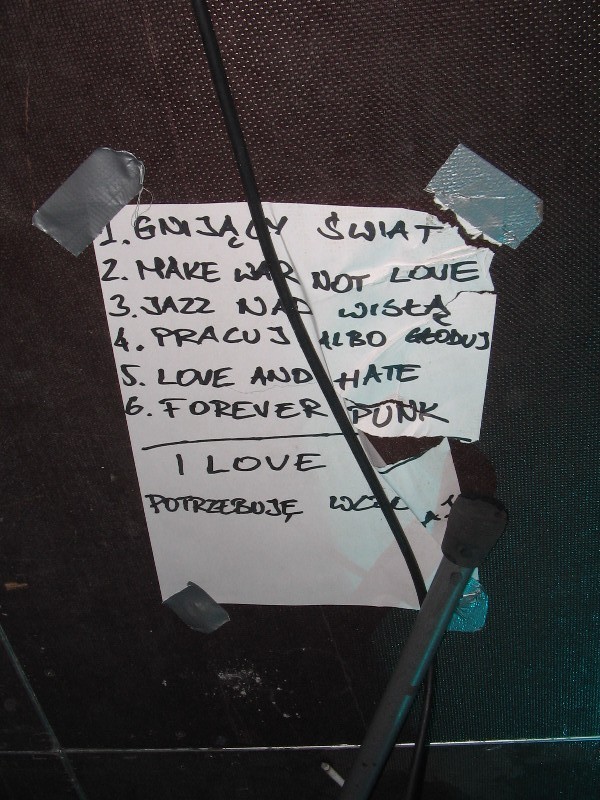 1. GNIJĄCY ŚWIAT
2. MAKE WAR NOT LOVE
3. JAZZ NAD WISŁĄ
4. PRACUJ ALBO GŁODUJ
5. LOVE AND HATE
6. FOREVER PUNK
I LOVE
POTRZEBUJĘ